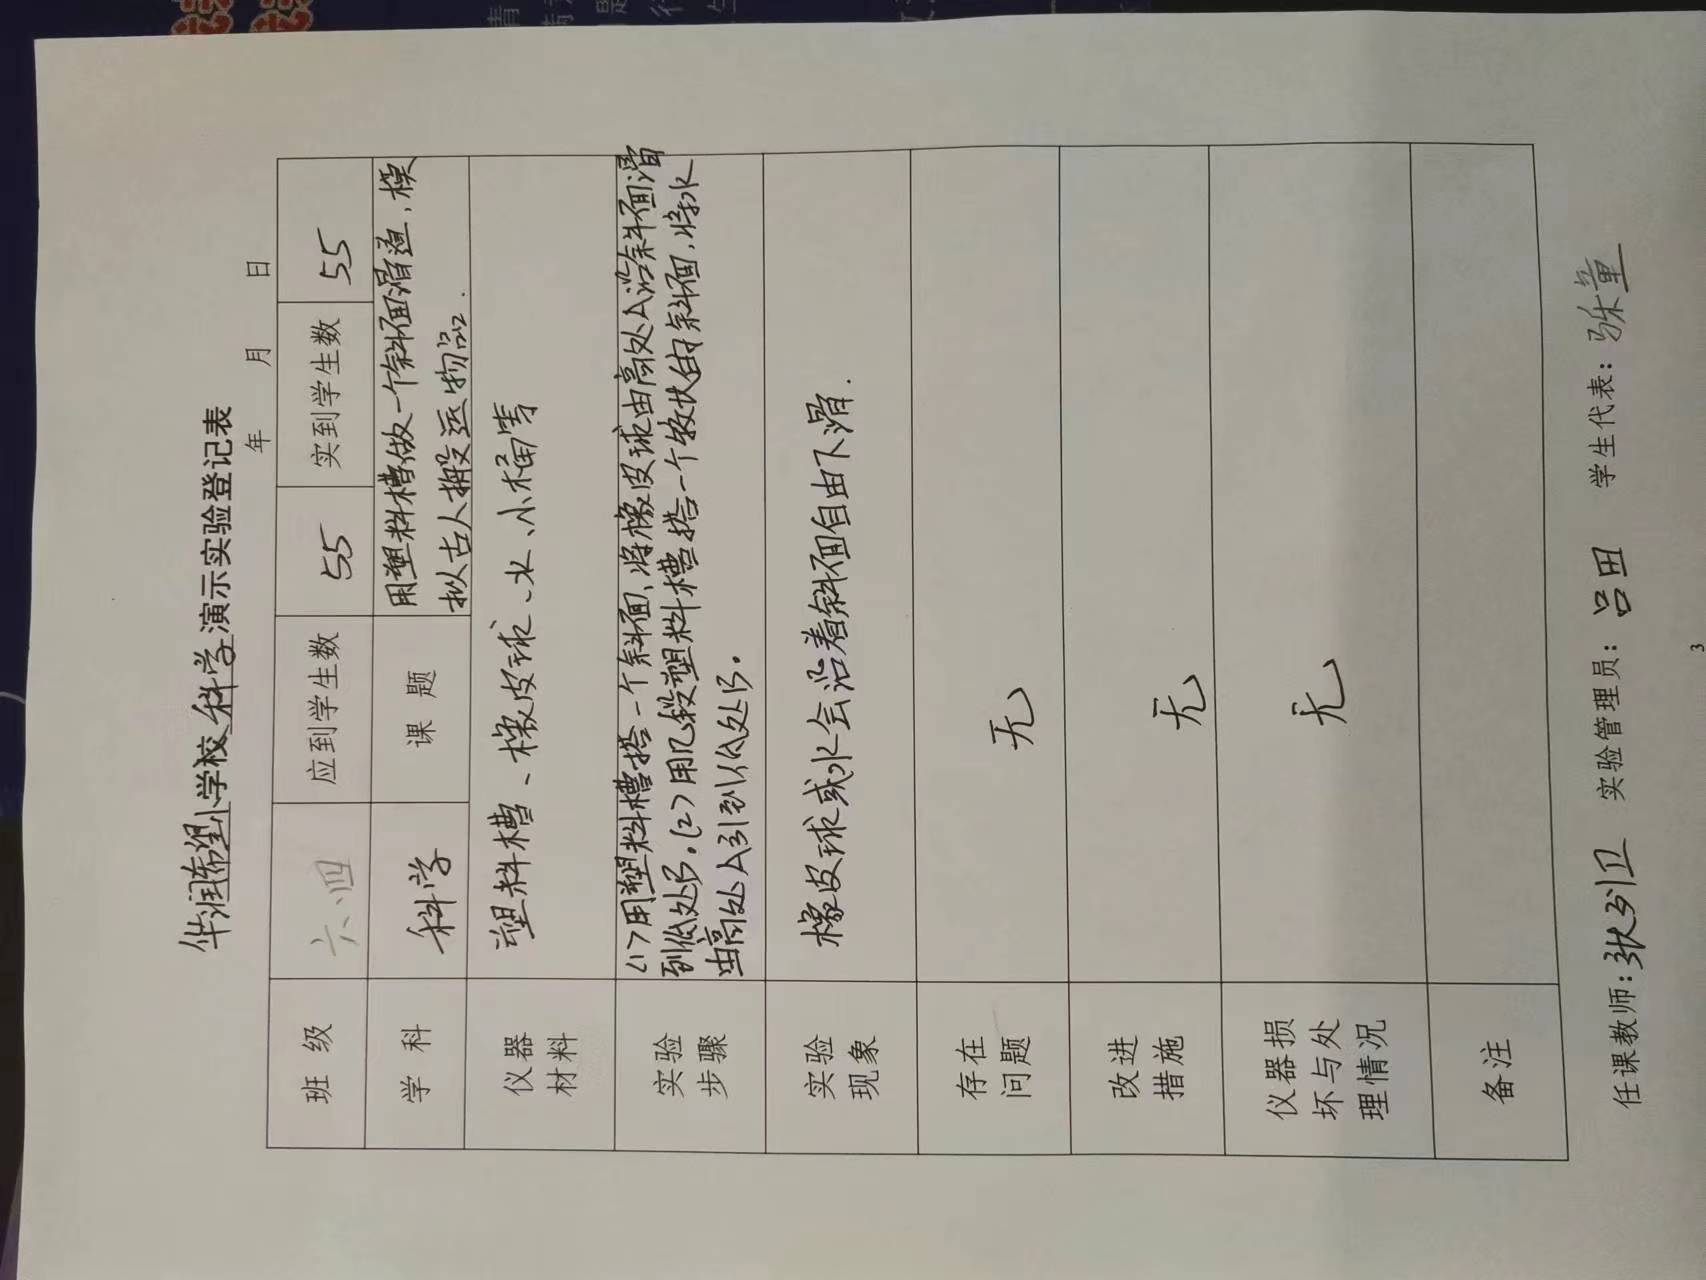 华润希望小学校科学演示实验登记表
年 月 日
班 级 六、四 应到学生数 55 实到学生数 55
学 科 科学 课 题 用塑料槽做一个斜面滑道,模
拟古人搬运物品.
仪器
材料
塑料槽、橡皮球、水、小桶等
实验
步骤
(1)用塑料槽搭一个斜面,将橡皮球由高处A沿斜面滑
到低处B.(2)用几段塑料槽搭一个 状的斜面,将水
由高处A引到低处B.
实验
现象
橡皮球或水会沿着斜面自由下滑.
存在
问题
无
改进
措施
无
仪器损
坏与处
理情况
无
备注
任课教师:张列卫 实验管理员:吕田 学生代表:
3